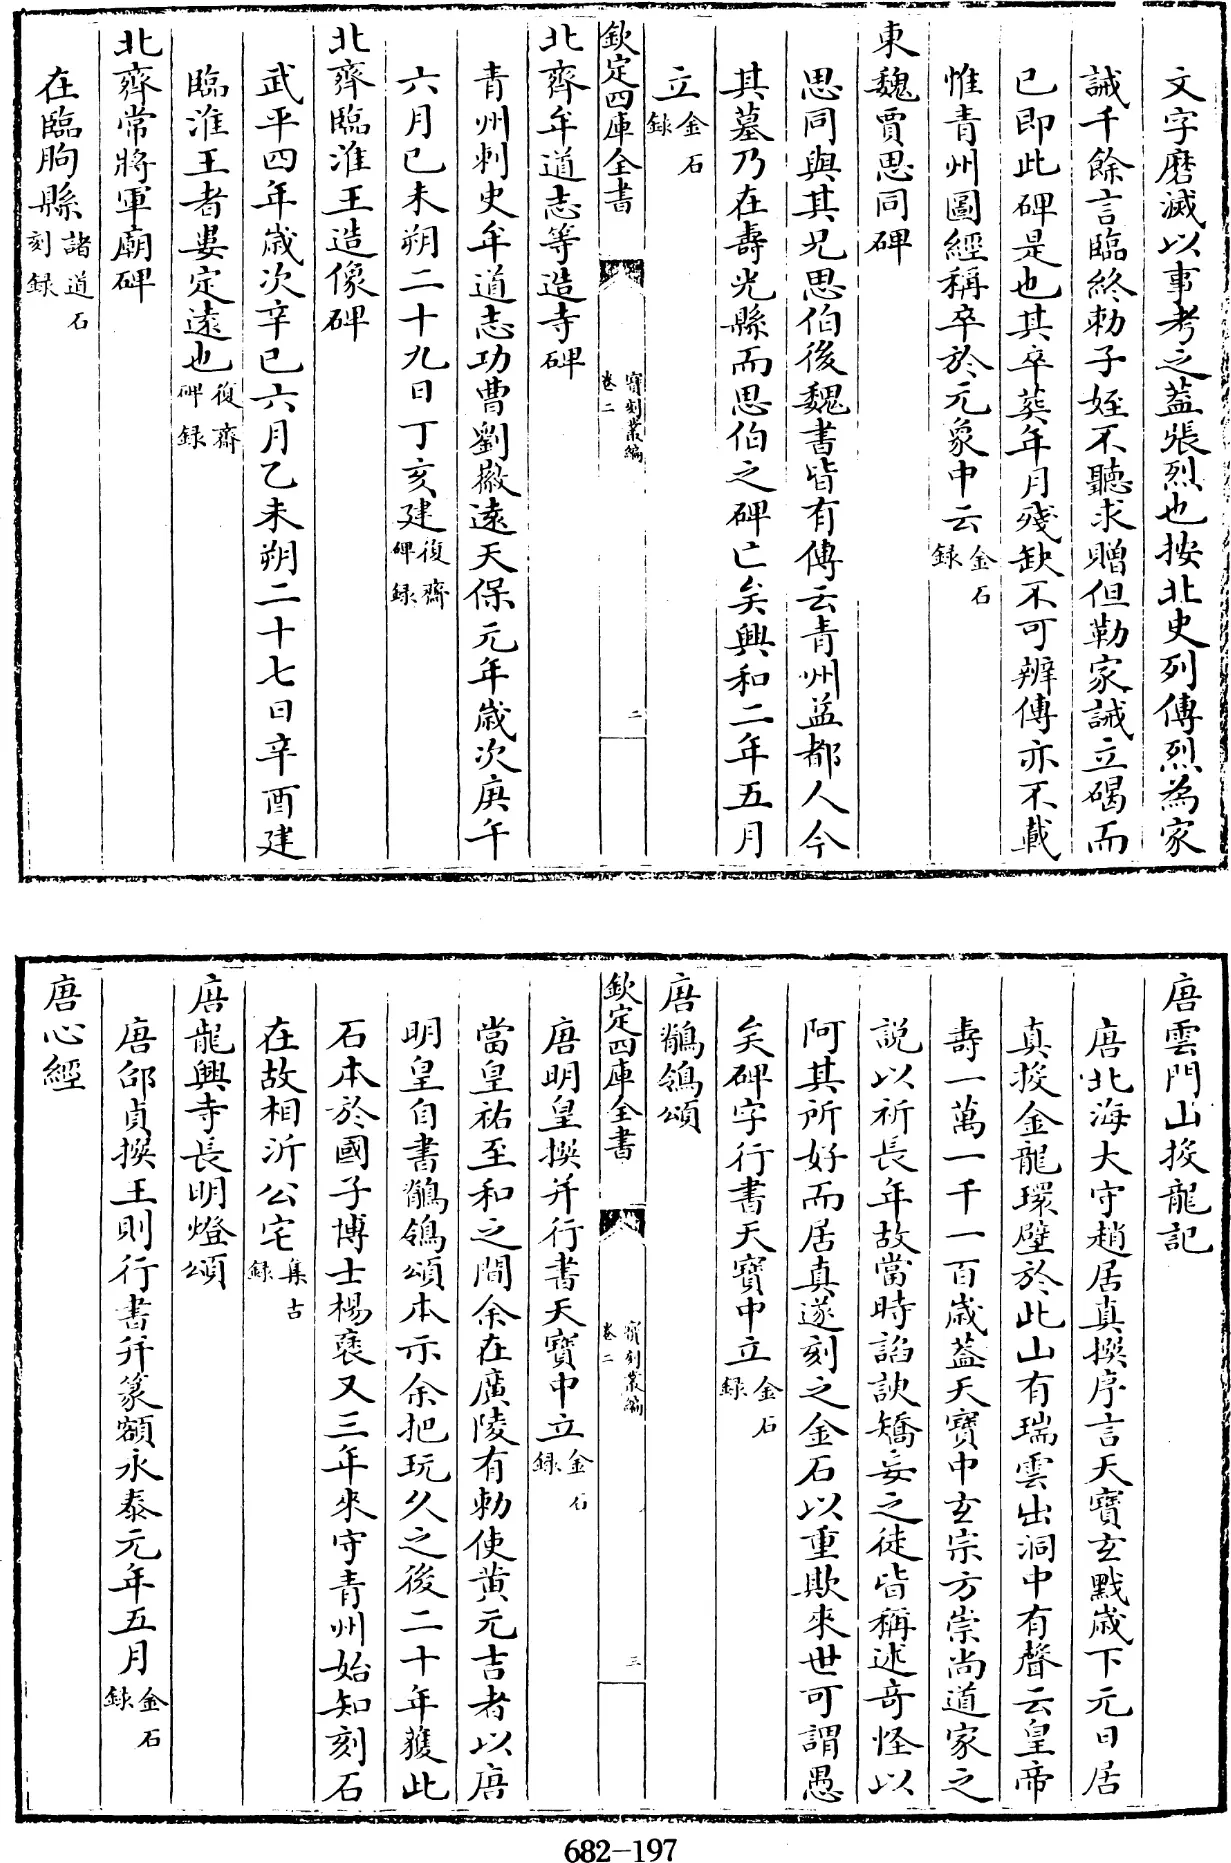 文字磨滅以事考之蓋張烈也按北史列傳烈為家
誡千餘言臨終勅子姪不聽求贈但勒家誡立碣而
已即此碑是也其卒葬年月殘缺不可辨傳亦不載
惟青州圖經稱卒於元象中云金石録
東魏賈思同碑
思同與其兄思伯後魏書皆有傳云青州益都人今
其墓乃在壽光縣而思伯之碑亡矣興和二年五月
立金石録
欽定四庫全書 寳刻叢編卷二 二
北齊牟道志等造寺碑
青州刺史牟道志功曹劉徽遠天保元年歳次庚午
六月己未朔二十九日丁亥建復齋碑録
北齊臨淮王造像碑
武平四年歳次辛巳六月乙未朔二十七日辛酉建
臨淮王者婁定遠也復齋碑録
北齊常將軍廟碑
在臨朐縣諸道石刻録
唐雲門山投龍記
唐北海大守趙居真撰序言天寳玄黓歳下元日居
真投金龍環璧於此山有瑞雲出洞中有聲云皇帝
壽一萬一千一百歳蓋天寳中玄宗方崇尚道家之
說以祈長年故當時諂諛矯妄之徒皆稱述竒怪以
阿其所好而居真遂刻之金石以重欺來世可謂愚
矣碑字行書天寳中立金石録
唐鶺鴒頌
欽定四庫全書 寳刻叢編卷二 三
唐明皇撰并行書天寳中立金石録
當皇祐至和之間余在廣陵有勅使黄元吉者以唐
明皇自書鶺鴒頌本示余把玩久之後二十年獲此
石本於國子博士楊褒又三年來守青州始知刻石
在故相沂公宅集古録
唐龍興寺長明燈頌
唐邵貞撰王則行書并篆額永泰元年五月金石録
唐心經
682-197